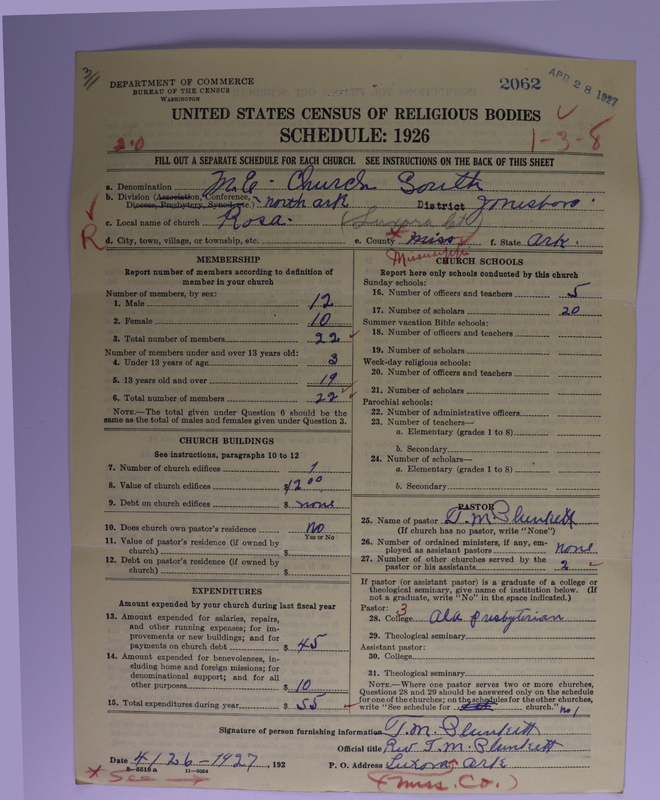 3/1
DEPARTMENT OF COMMERCE
BUREAU OF THE CENSUS
WASHINGTON
2062
APR 28 1927
UNITED STATES CENSUS OF RELIGIOUS BODIES
SCHEDULE: 1926
20
1-3-8
FILL OUT A SEPARATE SCHEDULE FOR EACH CHURCH. SEE INSTRUCTIONS ON THE BACK OF THIS SHEET
a. Denomination M.E. Church South
b. Division (Association, Conference, Diocese, Presbytery, Synod, etc.) north ark District Jonesboro.
c. Local name of church Rosa. (Luxora Ct)
R
d. City, town, village, or township, etc.
e. County Miss f. State Ark.
Mississippi
MEMBERSHIP
Report number of members according to definition of
member in your church
Number of members, by sex:
1. Male 12
2. Female 10
3. Total number of members 22
Number of members under and over 13 years old:
4. Under 13 years of age 3
5. 13 years old and over 19
6. Total number of members 22
NOTE.—The total given under Question 6 should be the
same as the total of males and females given under Question 3.
CHURCH BUILDINGS
See instructions, paragraphs 10 to 12
7. Number of church edifices 1
8. Value of church edifices $1200
9. Debt on church edifices $ none
10. Does church own pastor's residence No
Yes or No
11. Value of pastor's residence (if owned by
church) $
12. Debt on pastor's residence (if owned by
church) $
EXPENDITURES
Amount expended by your church during last fiscal year
13. Amount expended for salaries, repairs,
and other running expenses; for im-
provements or new buildings; and for
payments on church debt $ 45
14. Amount expended for benevolences, in-
cluding home and foreign missions; for
denominational support; and for all
other purposes $ 10
15. Total expenditures during year $ 55
CHURCH SCHOOLS
Report here only schools conducted by this church
Sunday schools:
16. Number of officers and teachers 5
17. Number of scholars 20
Summer vacation Bible schools:
18. Number of officers and teachers
19. Number of scholars
Week-day religious schools:
20. Number of officers and teachers
21. Number of scholars
Parochial schools:
22. Number of administrative officers
23. Number of teachers—
a. Elementary (grades 1 to 8)
b. Secondary
24. Number of scholars—
a. Elementary (grades 1 to 8)
b. Secondary
PASTOR
25. Name of pastor T. M. Plunkett
(If church has no pastor, write "None")
26. Number of ordained ministers, if any, em-
ployed as assistant pastors none
27. Number of other churches served by the
pastor or his assistants 2
If pastor (or assistant pastor) is a graduate of a college or
theological seminary, give name of institution below. (If
not a graduate, write "No" in the space indicated.)
Pastor: 3
28. College Ala Presbyterian
29. Theological seminary
Assistant pastor:
30. College
31. Theological seminary
NOTE.—Where one pastor serves two or more churches,
Questions 28 and 29 should be answered only on the schedule
for one of the churches; on the schedules for the other churches,
write "See schedule for church." no 1
Signature of person furnishing information T. M. Plunkett
Official title Rev T. M. Plunkett
Date 4/26-1927, 192 P. O. Address Luxora Ark
8-5518 a 11-9084
* See
(Miss. Co.)